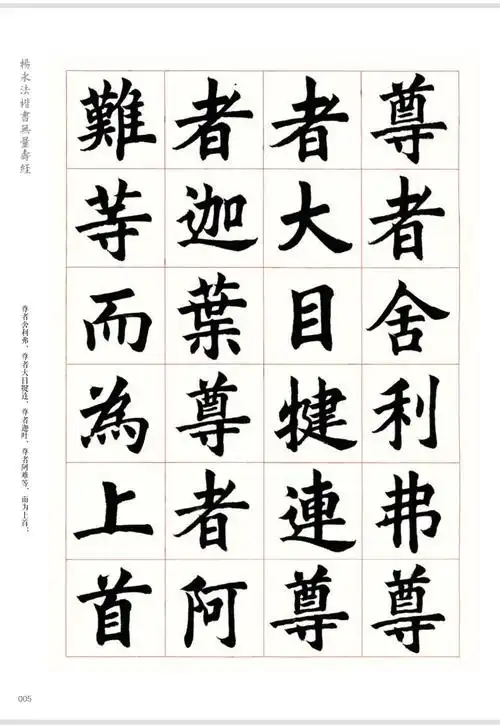 尊者舍利弗尊
者大目犍連尊
者迦葉尊者阿
難等而為上首
楊永法楷書無量壽經
尊者舍利弗、尊者大目犍连、尊者迦叶、尊者阿难等，而为上首；
005